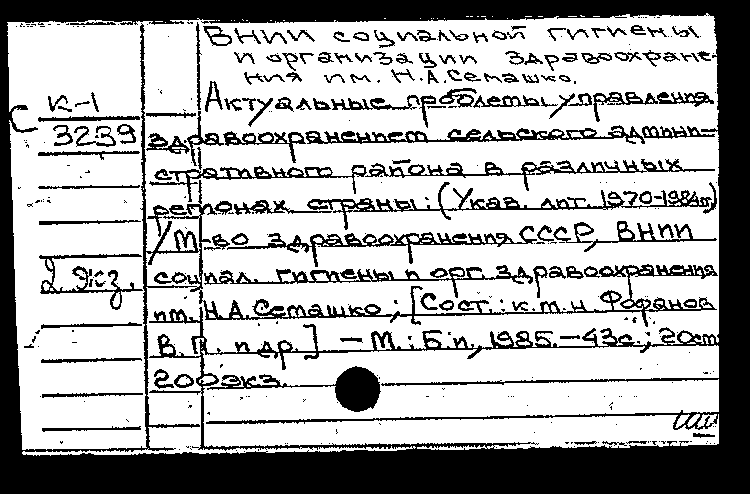 ВНИИ социальной гигиены
и организации здравоохране-
ния им. Н.А.Семашко.
К-1
Актуальные проблемы управления
С 3239 здравоохранением сельского админи-
стративного района в различных
регионах страны: (Указ. лит. 1970-1984гг)
/М-во здравоохранения СССР, ВНИИ
2 экз. социал. гигиены и орг. здравоохранения
им. Н.А.Семашко; [Сост.: к.м.н. Фофанов
В.П. и др.] — М.: Б.и., 1985. — 43с.; 20см
200экз.